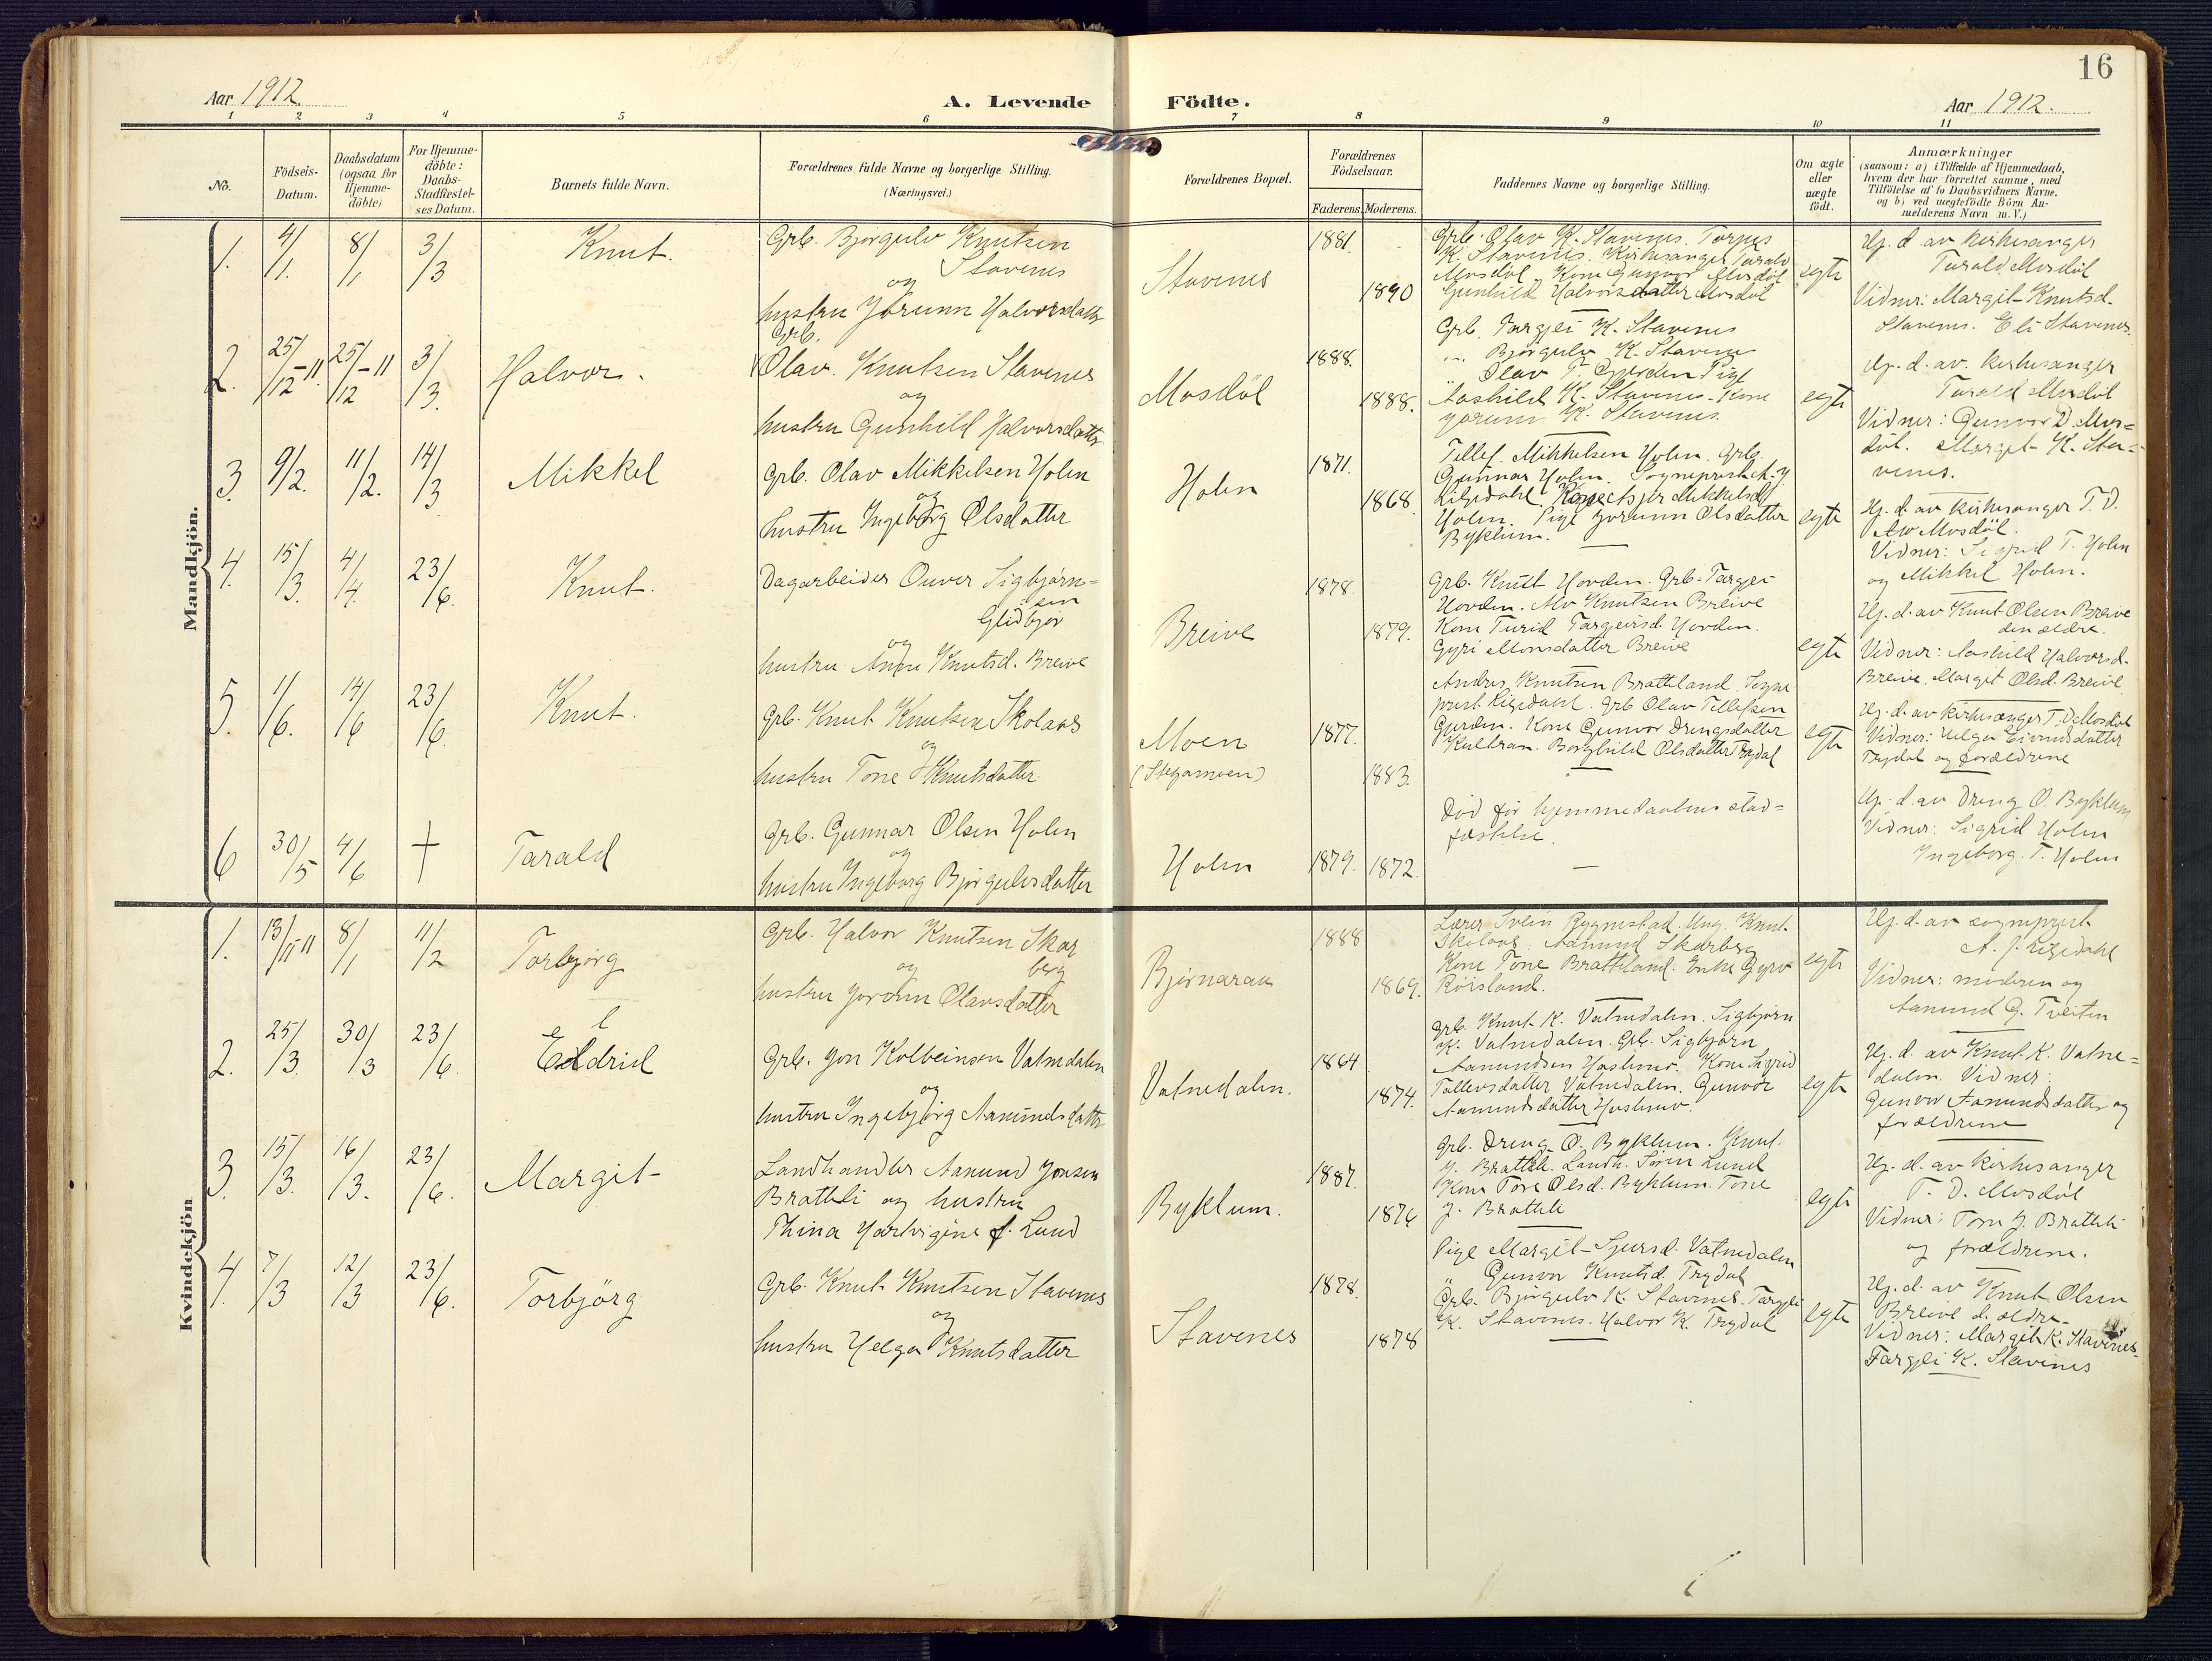 16
Aar 1912.
A. Levende Födte.
Aar 1912.
1 2 3 4 5 6 7 8 9 10 11
No.
Födsels-
Datum.
Daabsdatum
(ogsaa for
Hjemme-
döbte)
For Hjemme-
döbte:
Daabs-
Stadfæstel-
ses Datum.
Barnets fulde Navn.
Forældrenes fulde Navne og borgerlige Stilling.
(Næringsvei.)
Forældrenes Bopæl.
Forældrenes
Födselsaar.
Faderens. Moderens.
Faddernes Navne og borgerlige Stilling.
Om ægte
eller
uægte
födt.
Anmærkninger
(saasom: a) i Tilfælde af Hjemmedaab,
hvem der har forrettet samme, med
Tilföielse af to Daabsvidners Navne,
og b) ved uægtefödte Börn An-
melderens Navn m. V.)
Mandkjön.
1. 4/1. 8/1 3/3 Knut.
Grb. Bjørgulv Knutsen
Stavenes
og
hustru Jórunn Halvorsdatter
Stavenes
1881.
1890
Grb. Olav K. Stavenes. Torjus
K. Stavenes. Kirkesanger Tarald
Mosdöl. Kone Gunvor Mosdöl
Gunhild Halvorsdatter Mosdöl
egte
Hj. d. av kirkesanger
Tarald Mosdöl
Vidner: Margit Knutsd.
Stavenes. Eli Stavenes.
2. 25/12-11. 25/12-11 3/3. Halvor.
Grb.
Olav Knutsen Stavenes
og
hustru Gunhild Halvorsdatter
Mosdöl
1888.
1888.
Grb. Targjei K. Stavenes
" Bjørgulv K. Stavenes
" Olav T. Gjerden Pige
Aashild K. Stavenes. Kone
Jorunn K. Stavenes.
egte
Hj. d. av. kirkesanger
Tarald Mosdöl
Vidner: Gunvor D. Mos=
döl. Margit K. Sta=
venes.
3. 9/2. 11/2. 14/3 Mikkel
Grb. Olav Mikkelsen Holen
og
hustru Ingeborg Olsdatter
Holen
1871.
1868.
Tellef Mikkelsen Holen. Grb.
Gunnar Holen. Sogneprest A. J.
Ligedahl. Kone Asjer Mikkelsd
Holen. Pige Jorunn Olsdatter
Byklum.
egte
Hj. d. av kirkesanger T. D.
Mosdöl.
Vidner: Sigrid T. Holen
og Mikkel Holen.
4. 15/3. 4/4. 23/6. Knut.
Dagarbeider Ouver Sigbjørn=
sen
Glidbjør
og
hustru Anne Knutsd. Breive
Breive
1878.
1879.
Grb. Knut Hovden. Grb. Targjei
Hovden. Alv Knutsen Breive
Kone Turid Targjeirsd. Hovden.
Gyri Monsdatter Breive
egte
Hj. d. av Knut Olsen Breive
den ældre.
Vidner: Aashild Halvorsd.
Breive. Margit Olsd. Breive.
5. 1/6. 14/6 23/6. Knut.
Grb. Knut Knutsen Skolaas
og
hustru Tone Knutsdatter
Moen
(Stegamoen)
1877.
1883.
Andres Knutsen Brattland. Sogne
prest Ligedahl. Grb Olav Tellefsen
Gjerden. Kone Gunvor Dreng​sdatter
Kultran. Borghild Olsdatter Trydal
egte
Hj. d. av kirkesanger T. D. Mosdöl
Vidner: Helga Eivindsdatter
Trydal og forældrene
6 30/5 4/6 † Tarald
Grb. Gunnar Olsen Holen
og
hustru Ingeborg Bjørgulvsdatter
Holen
1879. 1872.
Död før hjemmedaabens stad=
fæstelse.
Hj. d. av Dreng O. Byklum
Vidner: Sigrid Holen
Ingeborg T. Holen
Kvindekjön
1. 13/11 11 8/1 11/2 Torbjørg
Grb. Halvor Knutsen Skar
berg
og
hustru Jorunn Olavsdatter
Bjørnaraa
1888
1869.
Lærer Svein Rygnestad. Ung. Knut
Skolaas. Aamund Skarberg
Kone Tone Brattland. Enke Gyro
Röisland.
egte
Hj. d. av sogneprest
A. J. Ligedahl
Vidner: moderen og
Aanund G. Tveiten
2. 25/3. 30/3 23/6. Eldrid
Grb. Jon Kolbeinsen Vatnedalen
og
hustru Ingebjørg Aanundsdatter
Vatnedalen.
1864
1874.
Grb. Knut K. Vatnedalen. Sigbjørn
K. Vatnedalen. Grb. Sigbjørn
Aamundsen Hoslemo. Kone Sigrid
Tallevsdatter Vatnedalen. Gunvor
Aamundsdatter Hoslemo.
egte
Hj. d. av Knut K. Vatne=
dalen. Vidner:
Gunvor Aamundsdatter og
forældrene
3. 15/3. 16/3. 23/6. Margit
Landhandler Aanund Jonsen
Brattli og hustru
Thina Hartvigine f. Lund
Byklum.
1887.
1876
Grb. Dreng O. Byklum. Knut
J. Brattli. Landh. Sören Lund
Kone Tore Olsd. Byklum. Tone
J. Brattli
egte
Hj. d. av kirkesanger
T. D. Mosdöl
Vidner: Tone J. Brattli
og forældrene.
4. 7/3 12/3 23/6. Torbjörg
Grb. Knut Knutsen Stavenes
og
hustru Helga Knutsdatter
Stavenes
1878.
1878
Pige Margit Sjursd. Vatnedalen
" Gunvor Knutsd. Trydal
Grb. Bjørgulv K. Stavenes. Targjei
K. Stavenes. Halvor K. Trydal
egte
Hj. d. av Knut Olsen
Breive d. ældre.
Vidner: Margit K. Stavenes.
Targjei K. Stavenes